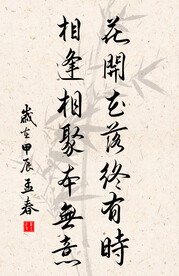 花開花落終有時
相逢相聚本無意
歲在甲辰孟春